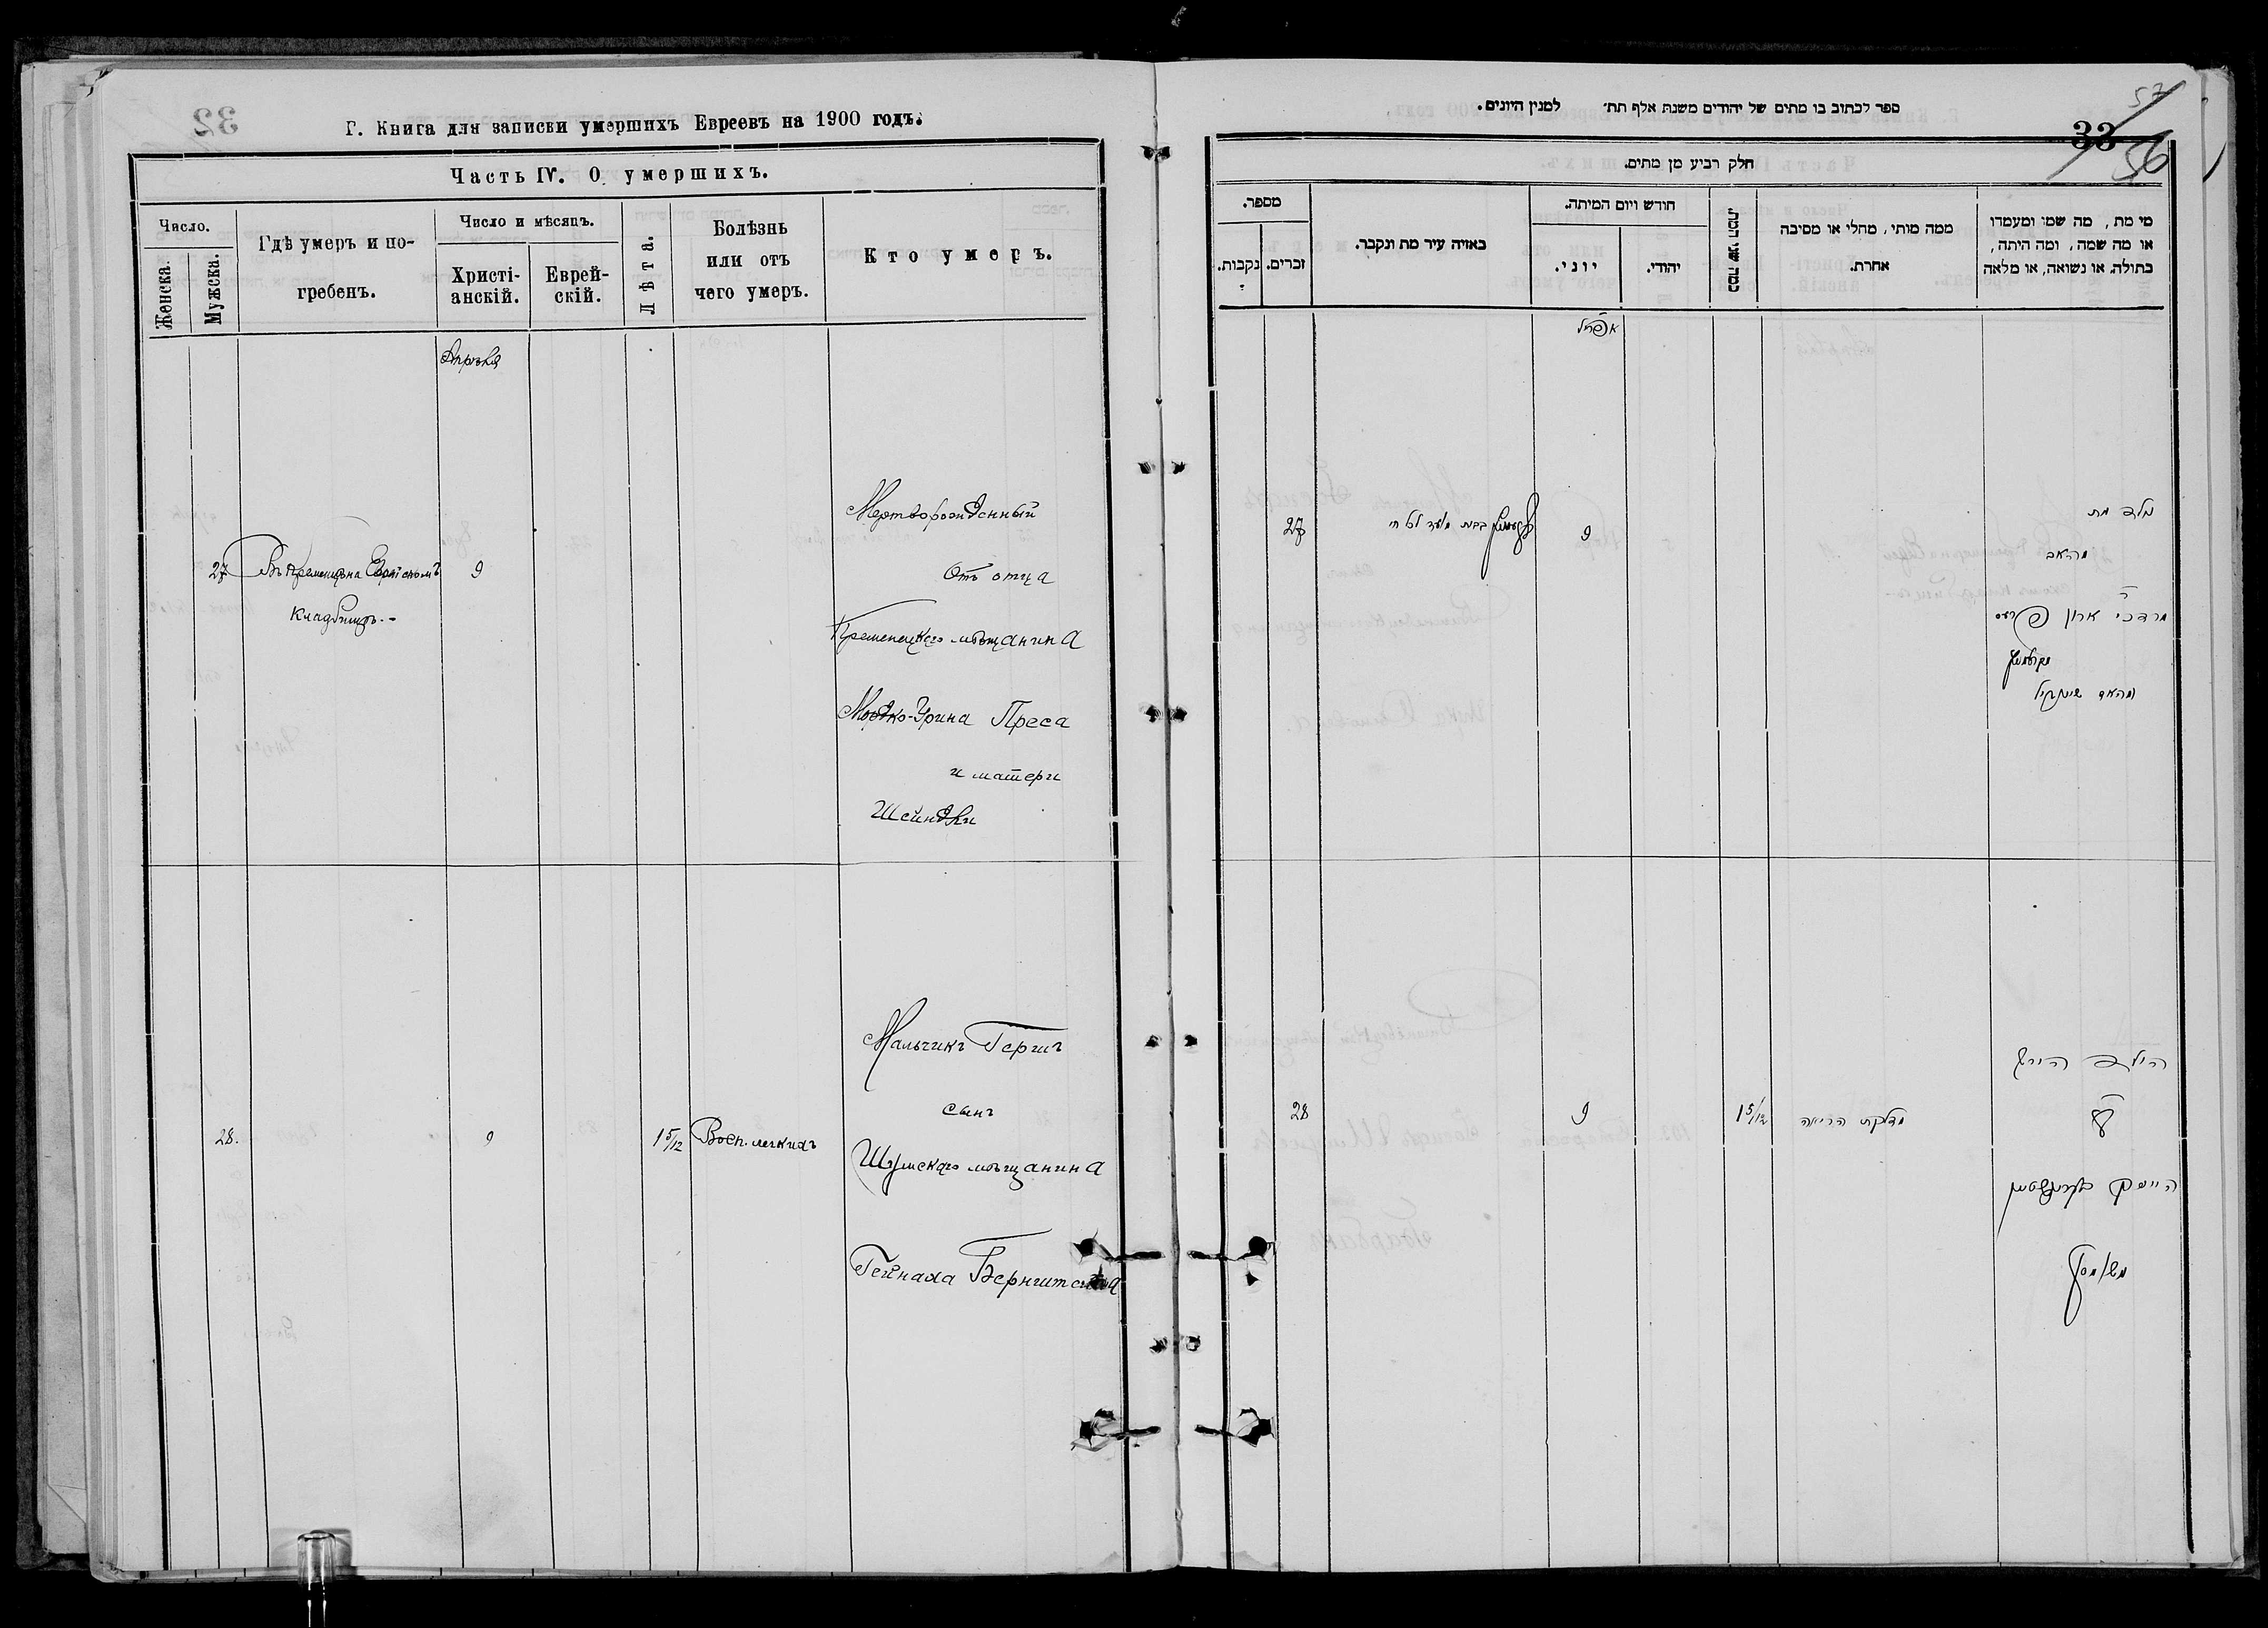 Г. Книга для записки умершихъ Евреевъ на 1900 годъ.
Часть IV. О умершихъ.
Число.
Женска.
Мужска.
Гдѣ умеръ и по-
гребенъ.
Число и мѣсяцъ.
Христі-
анскій.
Еврей-
скій.
Лѣта.
Болѣзнь
или отъ
чего умеръ.
Кто умеръ.
Апрѣля
27
Въ Кременцѣ на Еврейскомъ
кладбищѣ.-
9
Мертворожденный
Отъ отца
Кременецкаго мѣщанина
Мордко-Урина Преса
и матери
Шейндли
28.
9
1 5/12
Восп. легкихъ
Мальчикъ Гершъ
сынъ
Шумскаго мѣщанина
Гейнаха Бернштейна
ספר לכתוב בו מתים של יהודים משנת אלף תת׳ למנין היונים.
57
33
56
חלק רביע מן מתים.
מספר.
נקבות.
זכרים.
באיזה עיר מת ונקבר.
חודש ויום המיתה.
יוני.
יהודי.
כמה שני המת.
ממה מותי, מחלי או מסיבה
אחרת.
מי מת, מה שמו ומעמדו
או מה שמה, ומה היתה,
בתולה, או נשואה, או מלאה
אפריל
27
בבית מועד לכל חי
9
ילד מת
מהאב
מרדכי ארון פרעס
מקרעמניץ
והאם שיינדיל
28
9
1 5/12
מדלקת הריאה
הילד הירש
בן
היינך בערנשטיין
משומסק